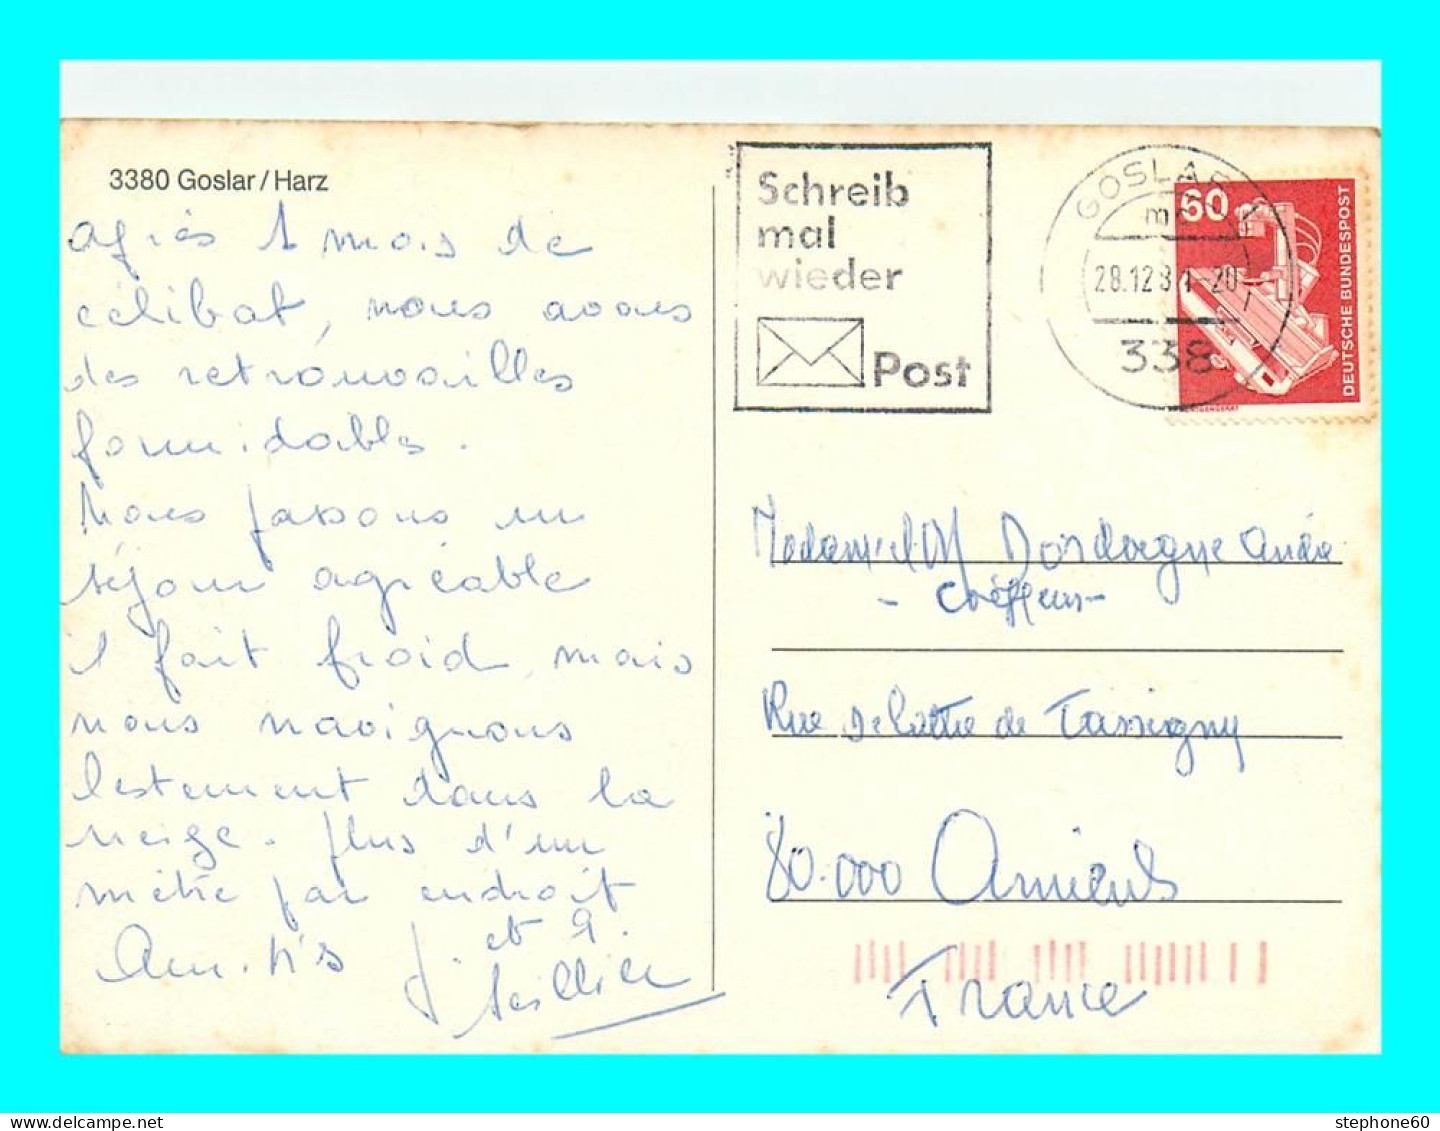 3380 Goslar/Harz
après 1 mois de
célibat, nous avons
des retrouvailles
formidables.
Nous passons un
séjour agréable
il fait froid, mais
nous naviguons
lestement dans la
neige. Plus d'un
mètre par endroit
Amitiés J et
Schreib
mal
wieder
Post
GOSLAR
28.12.81-20
338
60
DEUTSCHE BUNDESPOST
Madame et M Dordaigne
- Coiffeur -
Rue De Lattre de Tassigny
80.000 Amiens
France
stephone60